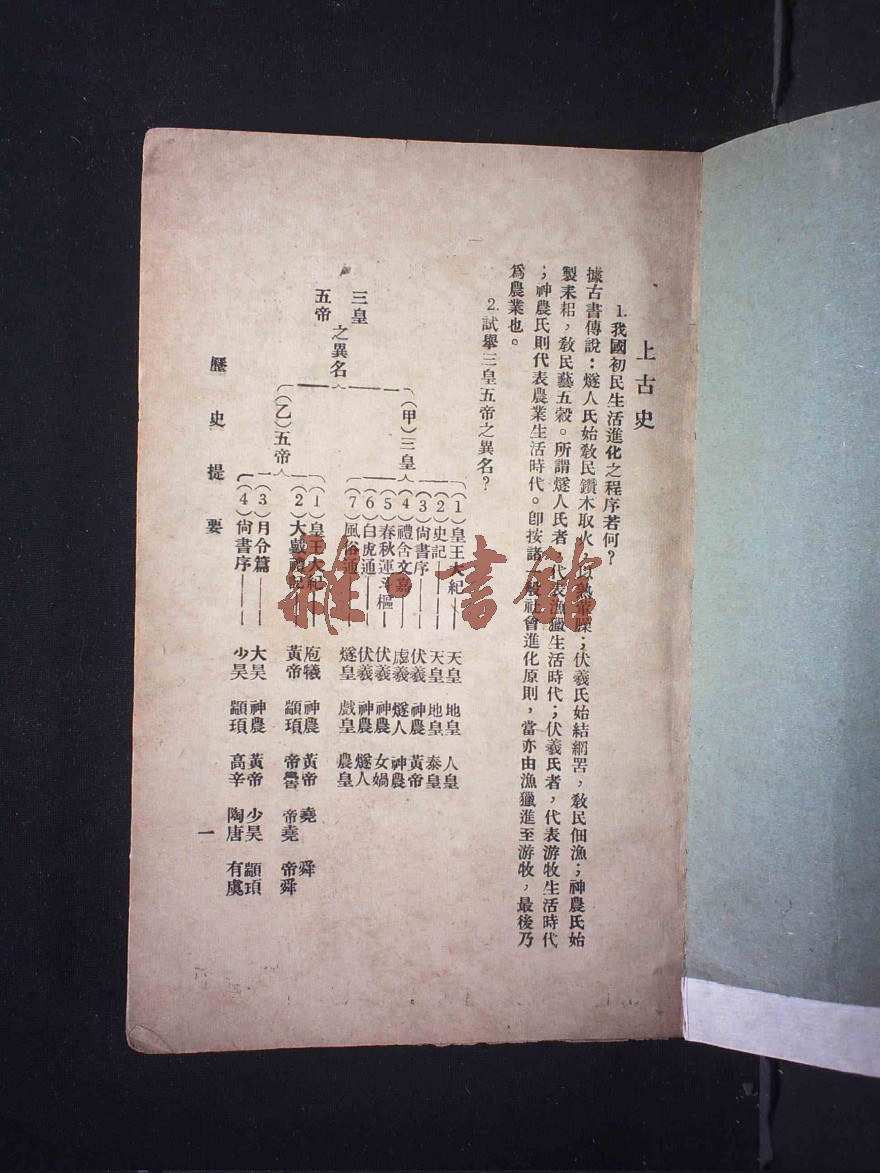 上古史
1.我國初民生活進化之程序若何?
據古書傳說:燧人氏始敎民鑽木取火,以熟葷臊;伏羲氏始結網罟,敎民佃漁;神農氏始
製耒耜,敎民藝五穀。所謂燧人氏者,代表漁獵生活時代;伏羲氏者,代表游牧生活時代
;神農氏則代表農業生活時代。卽按諸一般社會進化原則,當亦由漁獵進至游牧,最後乃
爲農業也。
2.試舉三皇五帝之異名?
三皇
五帝
之異名
(甲)三皇
(1)皇王大紀 天皇 地皇 人皇
(2)史記 天皇 地皇 泰皇
(3)尙書序 伏羲 神農 黃帝
(4)禮含文嘉 虙羲 燧人 神農
(5)春秋運斗樞 伏羲 神農 女媧
(6)白虎通 伏羲 神農 燧人
(7)風俗通 燧皇 戲皇 農皇
(乙)五帝
(1)皇王大紀 庖犧 神農 黃帝 堯 舜
(2)大戴禮記 黃帝 顓頊 帝嚳 帝堯 帝舜
(3)月令篇 大昊 神農 黃帝 少昊 顓頊
(4)尙書序 少昊 顓頊 高辛 陶唐 有虞
歷史提要
一
雜·書館